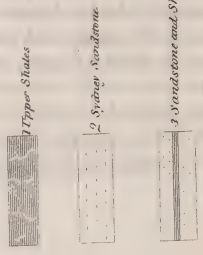 1 Upper Shales
2 Sydney Sandstone.
3 Sandstone and Sh